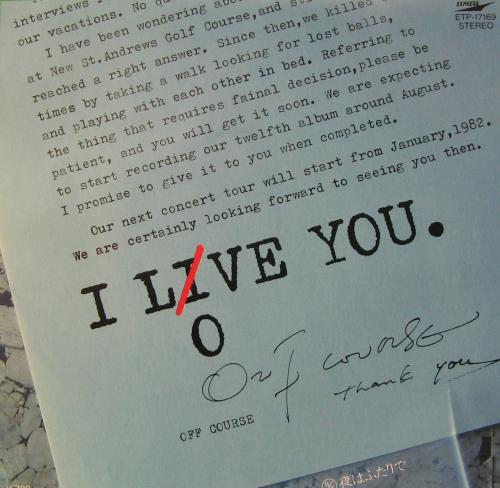 EXPRESS
ETP-17169
STEREO
interviews
our vacations. No
I have been wondering
at New St.Andrews Golf Course,and
reached a right answer. Since then,we killed
times by taking a walk looking for lost balls,
and playing with each other in bed. Referring to
the thing that requires fainal decision,please be
patient, and you will get it soon. We are expecting
to start recording our twelfth album around August.
I promise to give it to you when completed.
Our next concert tour will start from January,1982.
We are certainly looking forward to seeing you then.
I LIVE YOU.
O
Off course
thank you
OFF COURSE
夜はふたりで